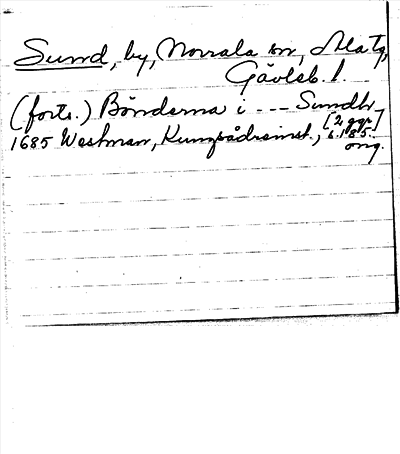 Sund, by, Norrala sn,
Gävleb. l.
(forts.) Bönderna i --- Sundh
[2 ggr]
1685 Westman, Kungsådrainst., s. 185.
orig.